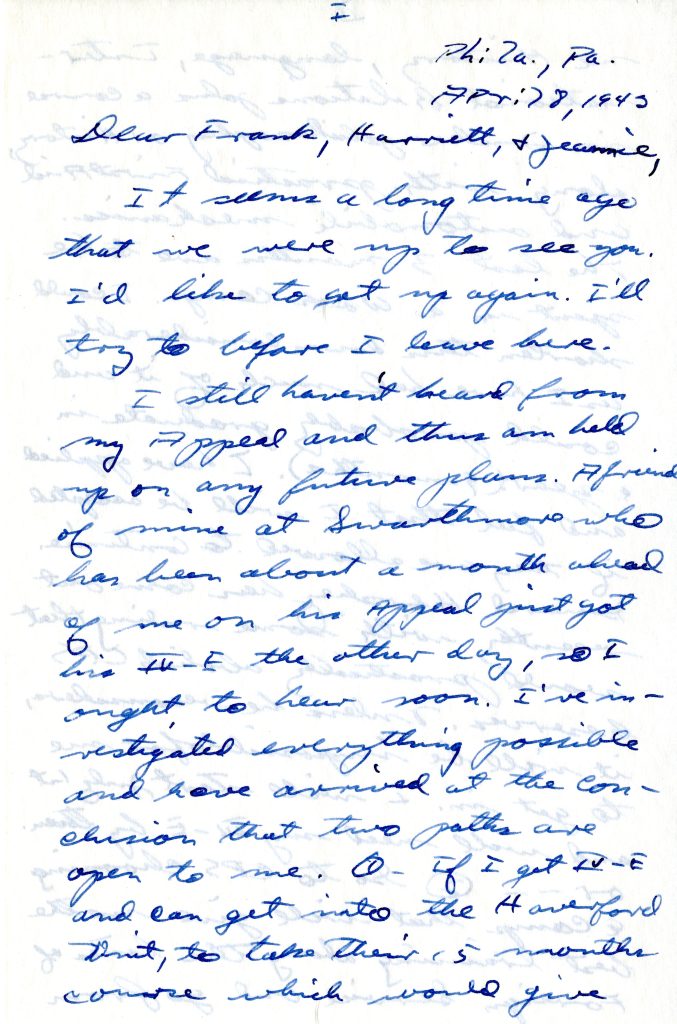 I
Phila., Pa.
April 8, 1943
Dear Frank, Harriett, & Jeannie,
It seems a long time ago
that we were up to see you.
I'd like to get up again. I'll
try to before I leave here.
I still haven't heard from
my Appeal and thus am held
up on any future plans. A friend
of mine at Swarthmore who
has been about a month ahead
of me on his Appeal just got
his IV-E the other day, so I
ought to hear soon. I've in-
vestigated everything possible
and have arrived at the con-
clusion that two paths are
open to me. If I get IV-E
and can get into the Haverford
Unit, to take their 15 months
course which would give